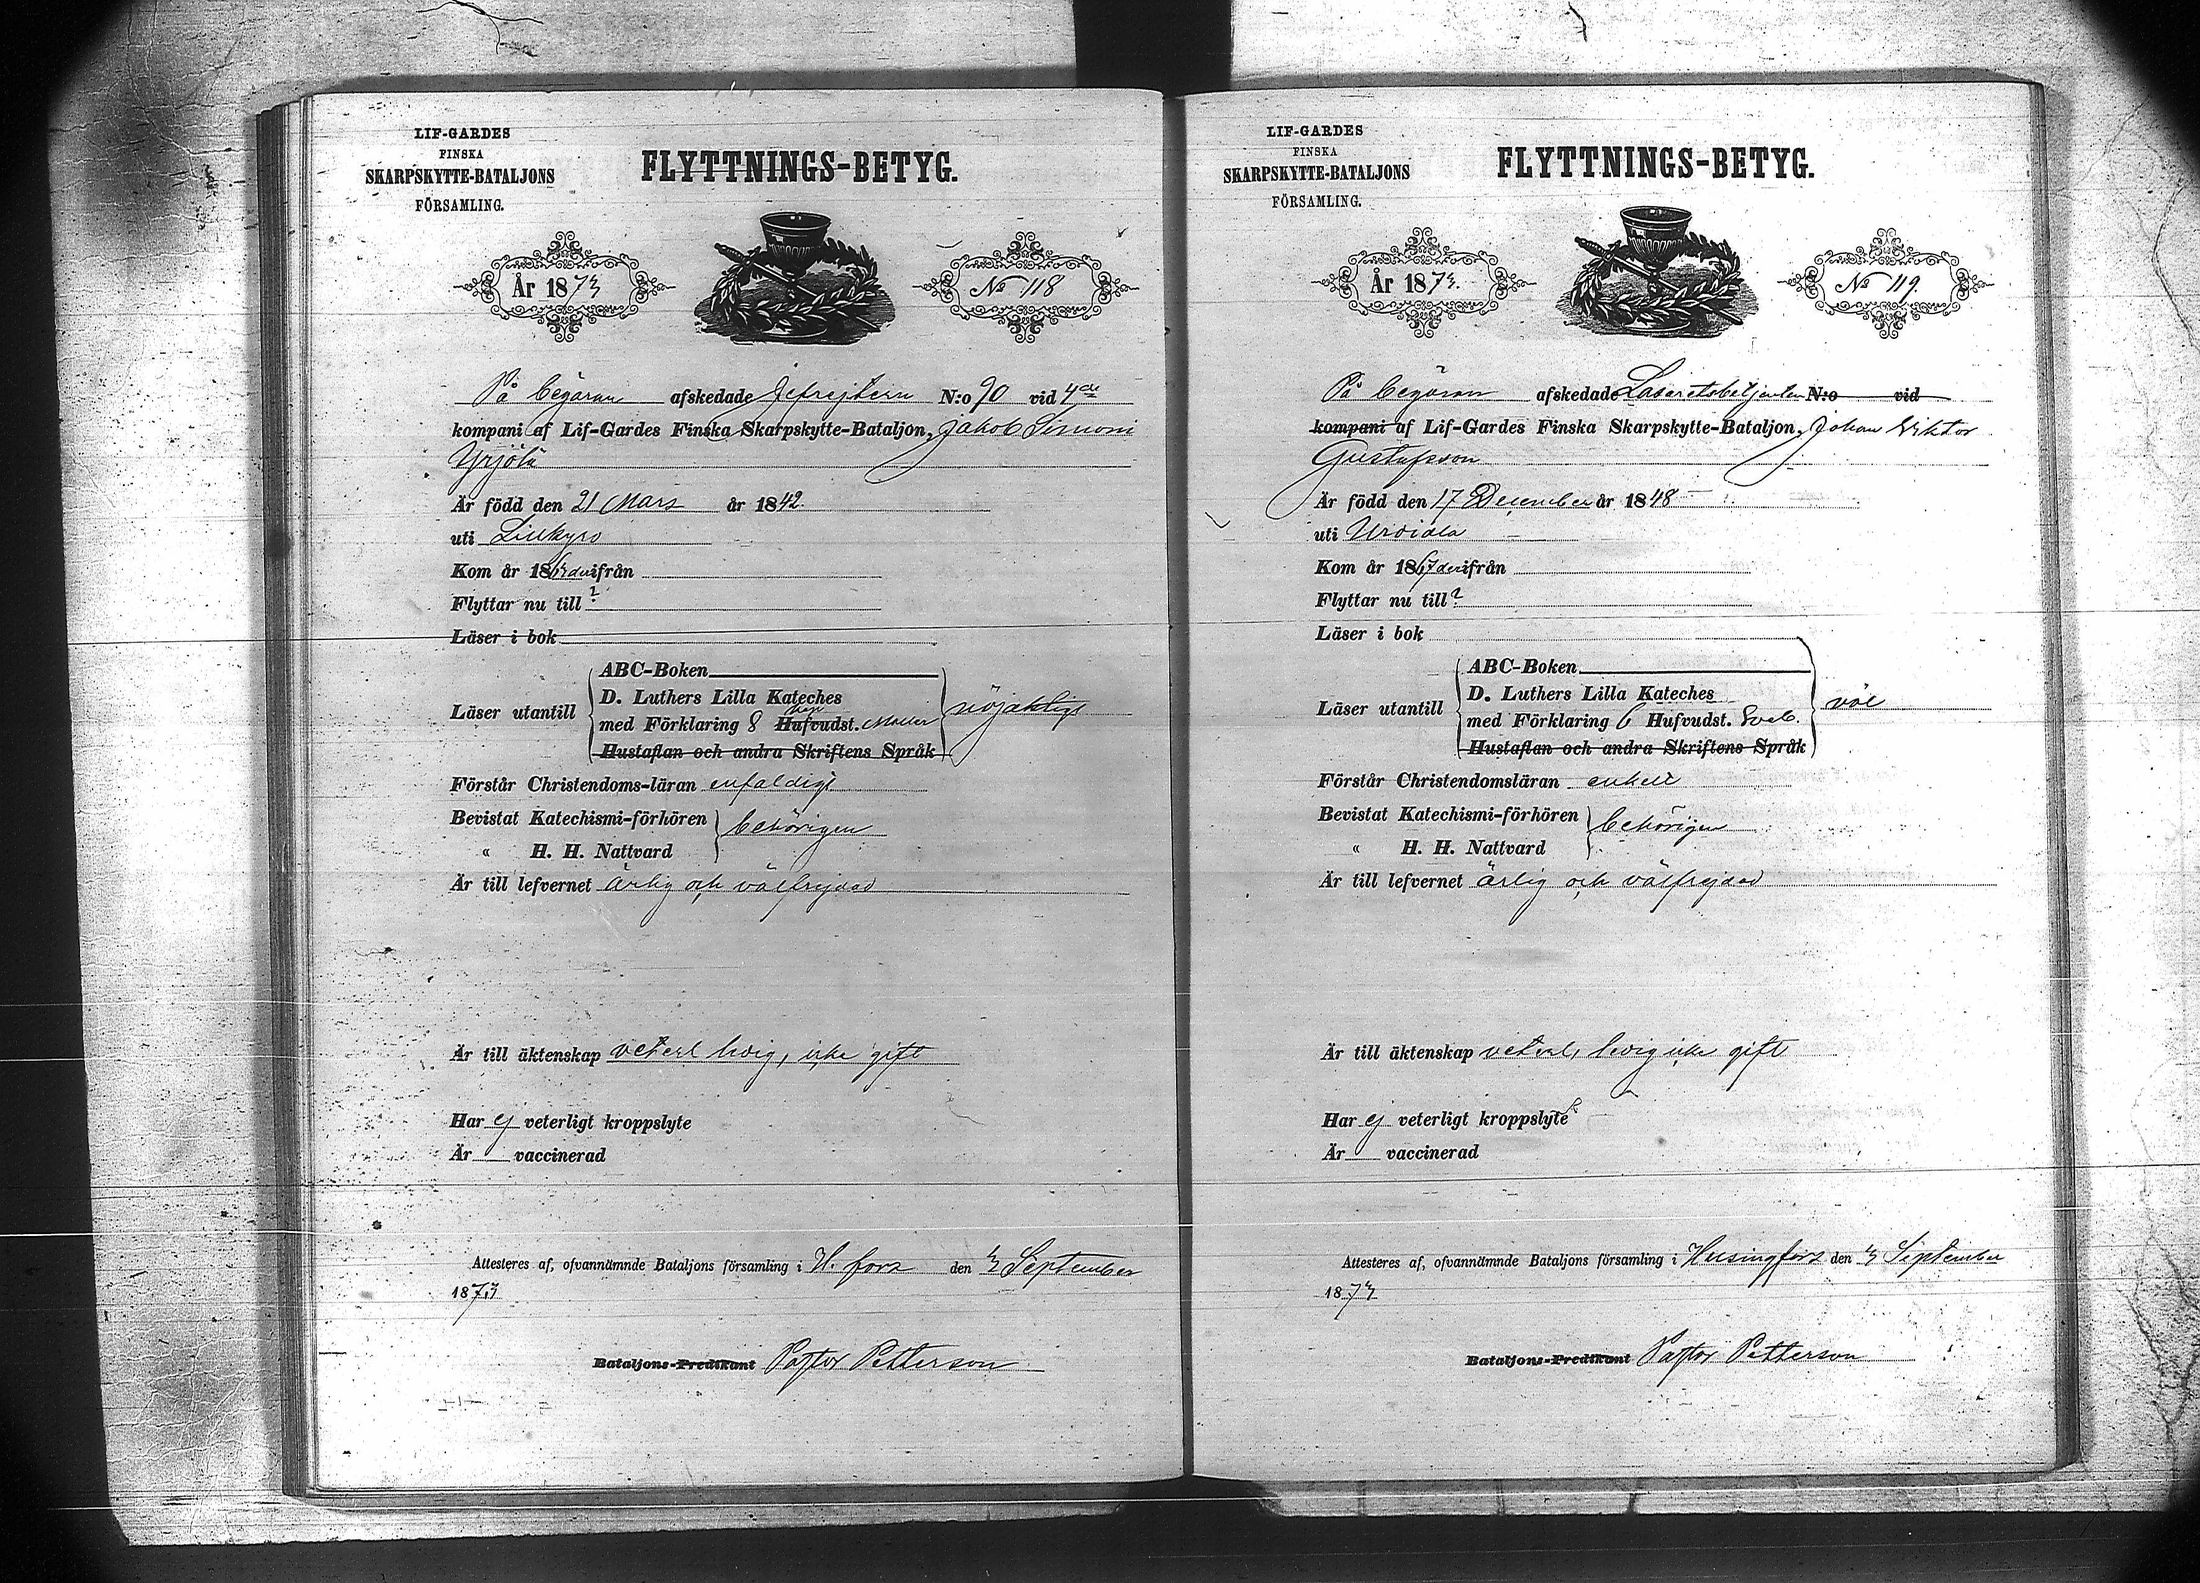 LIF-GARDES
FINSKA
SKARPSKYTTE-BATALJONS
FÖRSAMLING.
FLYTTNINGS-BETYG.
År 1873
No 118
På begäran afskedade Gefrejtern N:o 90 vid 4de
kompani af Lif-Gardes Finska Skarpskytte-Bataljon, Jakob Simoni
Yrjölä
Är född den 21 Mars år 1842.
uti Lillkyro
Kom år 18 derifrån
Flyttar nu till ?
Läser i bok
ABC-Boken
Läser utantill D. Luthers Lilla Kateches
med Förklaring 8 Hufvudst. Möller nöjaktigt
Hustaflan och andra Skriftens Språk
Förstår Christendoms-läran enfaldigt
Bevistat Katechismi-förhören behörigen
“ H. H. Nattvard
Är till lefvernet ärlig och välfrejdad
Är till äktenskap veterl ledig, icke gift
Har ej veterligt kroppslyte
Är vaccinerad
Attesteres af, ofvannämnde Bataljons församling i H. fors den 3 September
1873
Bataljons-Predikant Pastor Petterson
LIF-GARDES
FINSKA
SKARPSKYTTE-BATALJONS
FÖRSAMLING.
FLYTTNINGS-BETYG.
År 1873.
No 119.
På begäran afskedade Lasaretsbetjenten N:o vid
kompani af Lif-Gardes Finska Skarpskytte-Bataljon, Johan Viktor
Gustafsson
Är född den 17 December år 1848
uti Urdiala
Kom år 1867 derifrån
Flyttar nu till ?
Läser i bok
ABC-Boken
Läser utantill D. Luthers Lilla Kateches
med Förklaring 6 Hufvudst. Sveb. väl
Hustaflan och andra Skriftens Språk
Förstår Christendomsläran enkelt
Bevistat Katechismi-förhören behörigen
“ H. H. Nattvard
Är till lefvernet ärlig och välfrejdad
Är till äktenskap veterl, ledig icke gift
Har ej veterligt kroppslyte
Är vaccinerad
Attesteres af, ofvannämnde Bataljons församling i Helsingfors den 3 September
1873
Bataljons-Predikant Pastor Petterson